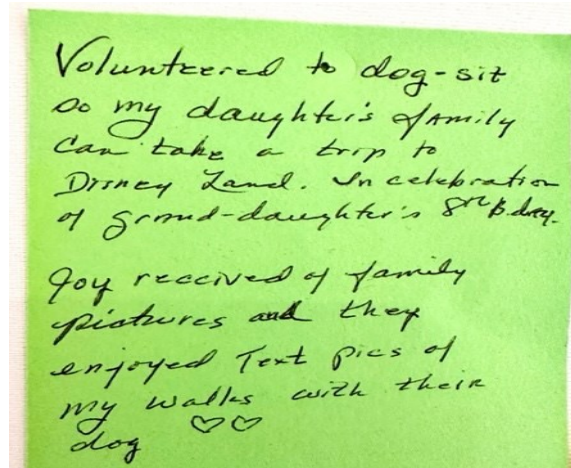 Volunteered to dog-sit
so my daughter's family
can take a trip to
Disney Land. In celebration
of grand-daughter's 8th B.day.
Joy received of family
pictures and they
enjoyed Text pics of
my walks with their
dog ♡♡